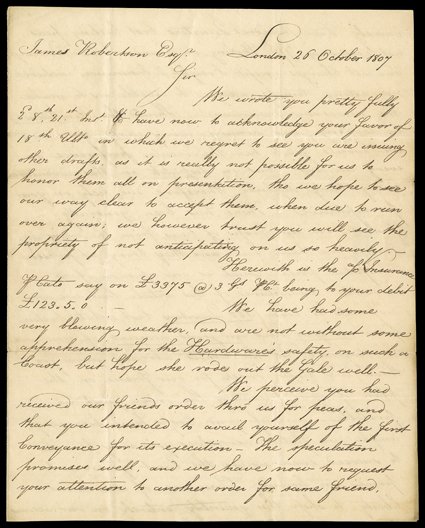 James Robertson Esqr. London 26 October 1807
Sir
We wrote you pretty fully
8th. 21.st Inst. & have now to acknowledge your favor of
18th Ulto in which we regret to see you are issuing
other drafts, as it is really not possible for us to
honor them all on presentation, tho we hope to see
our way clear to accept them, when due to run
over again; we however trust you will see the
propriety of not anticipating on us so heavily
Herewith is the Insurance
say on £3375 @ 3 Gs bring to your debit
£123.5.0 — We have had some
very blowing weather, and are not without some
apprehension for the Hardware's safety, on such a
Coast, but hope she rodes out the Gale well. —
We perceive you had
received our friends order thro us for peas, and
that you intended to avail yourself of the first
Conveyance for its execution — The speculation
promises well, and we have now to request
your attention to another order for same friend,